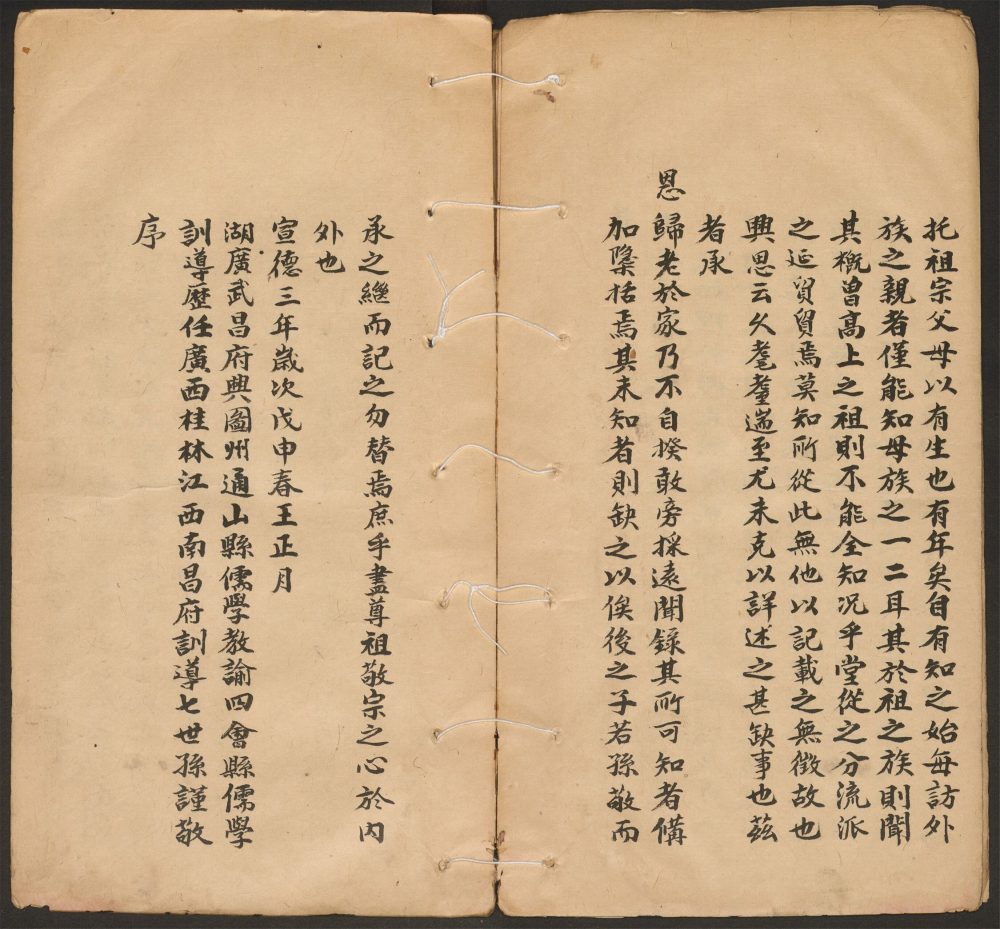 托祖宗父母以有生也有年矣自有知之始每訪外
族之親者僅能知母族之一二耳其於祖之族則聞
其概曾高上之祖則不能全知况乎堂從之分流派
之延貿貿焉莫知所從此無他以記載之無徴故也
興思云久耄耋遄至尤未克以詳述之甚缺事也茲
者承
恩歸老於家乃不自揆敢旁採遠聞錄其所可知者備
加櫽括焉其未知者則缺之以俟後之子若孫敬而
承之繼而記之勿替焉庶乎盡尊祖敬宗之心於內
外也
宣德三年歲次戊申春王正月
湖廣武昌府興國州通山縣儒學教諭四會縣儒學
訓導歷任廣西桂林江西南昌府訓導七世孫謹敬
序